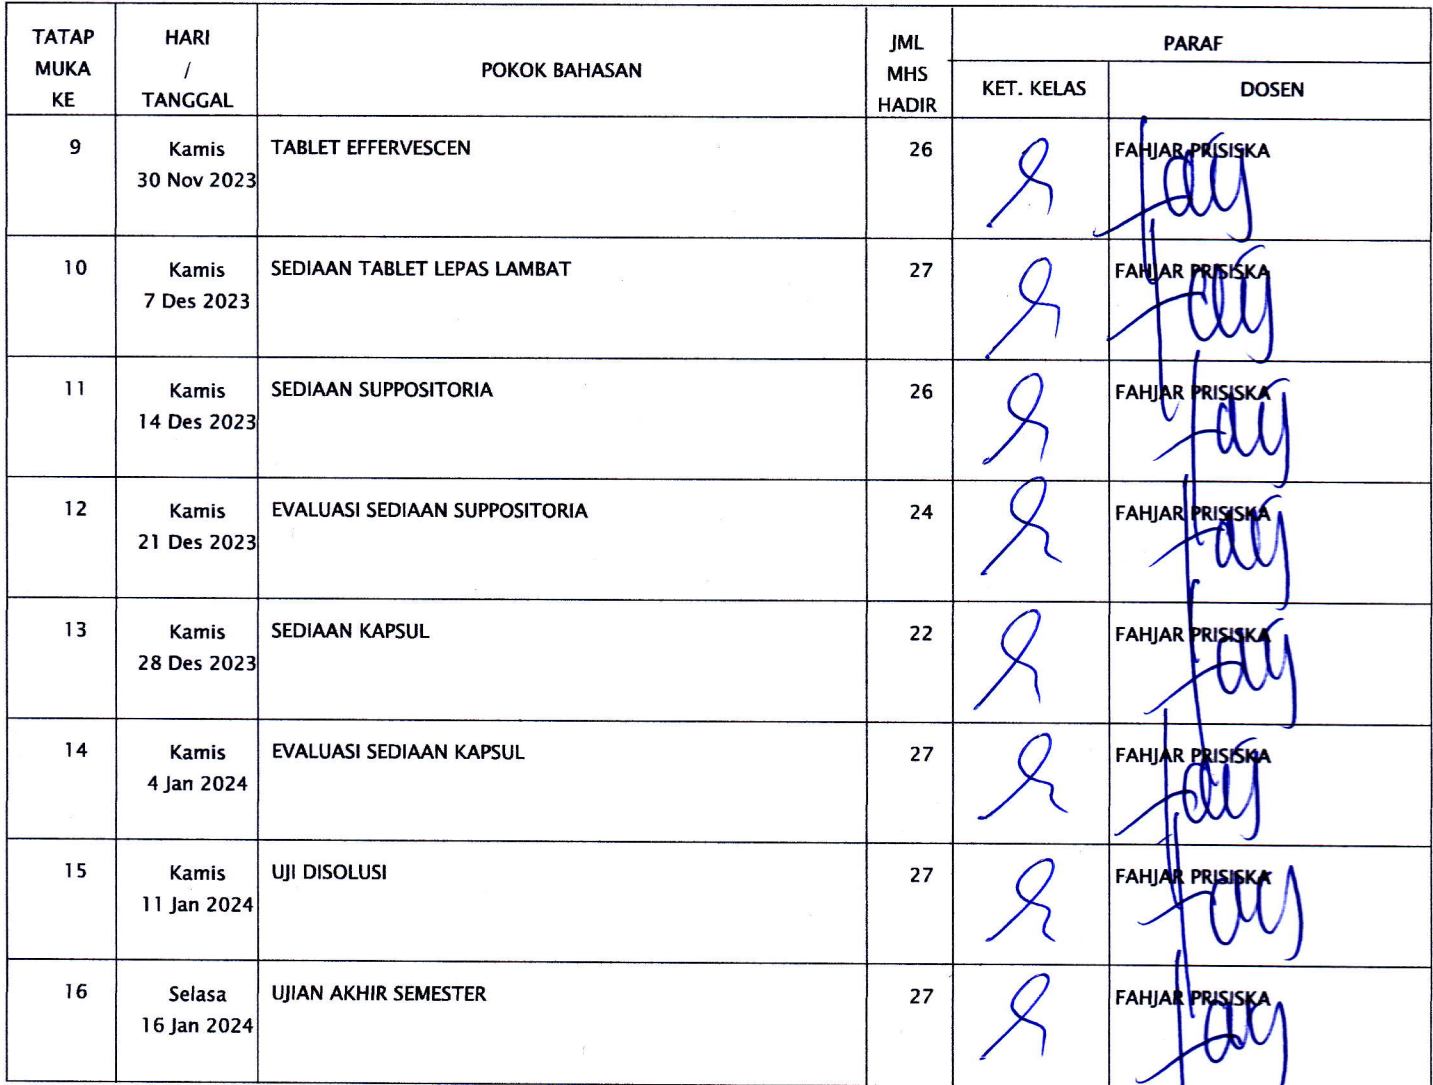 TATAP MUKA KE
HARI / TANGGAL
POKOK BAHASAN
JML MHS HADIR
PARAF
KET. KELAS
DOSEN
9
Kamis
30 Nov 2023
TABLET EFFERVESCEN
26
FAHJAR PRISISKA
10
Kamis
7 Des 2023
SEDIAAN TABLET LEPAS LAMBAT
27
FAHJAR PRISISKA
11
Kamis
14 Des 2023
SEDIAAN SUPPOSITORIA
26
FAHJAR PRISISKA
12
Kamis
21 Des 2023
EVALUASI SEDIAAN SUPPOSITORIA
24
FAHJAR PRISISKA
13
Kamis
28 Des 2023
SEDIAAN KAPSUL
22
FAHJAR PRISISKA
14
Kamis
4 Jan 2024
EVALUASI SEDIAAN KAPSUL
27
FAHJAR PRISISKA
15
Kamis
11 Jan 2024
UJI DISOLUSI
27
FAHJAR PRISISKA
16
Selasa
16 Jan 2024
UJIAN AKHIR SEMESTER
27
FAHJAR PRISISKA